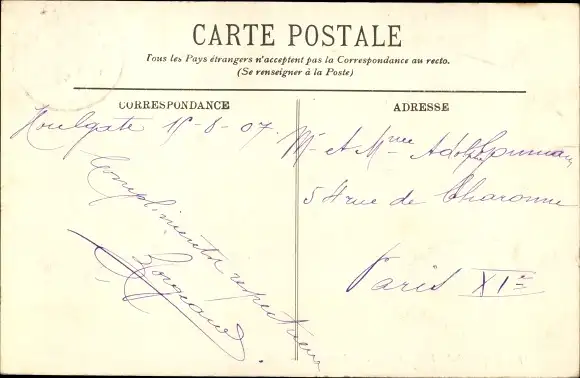 CARTE POSTALE
Tous les Pays étrangers n'acceptent pas la Correspondance au recto.
(Se renseigner à la Poste)
CORRESPONDANCE
Houlgate 15-8-07.
Compliments respectueux
ADRESSE
Mr et Mme Adolf
54 rue de Charonne
Paris XIe